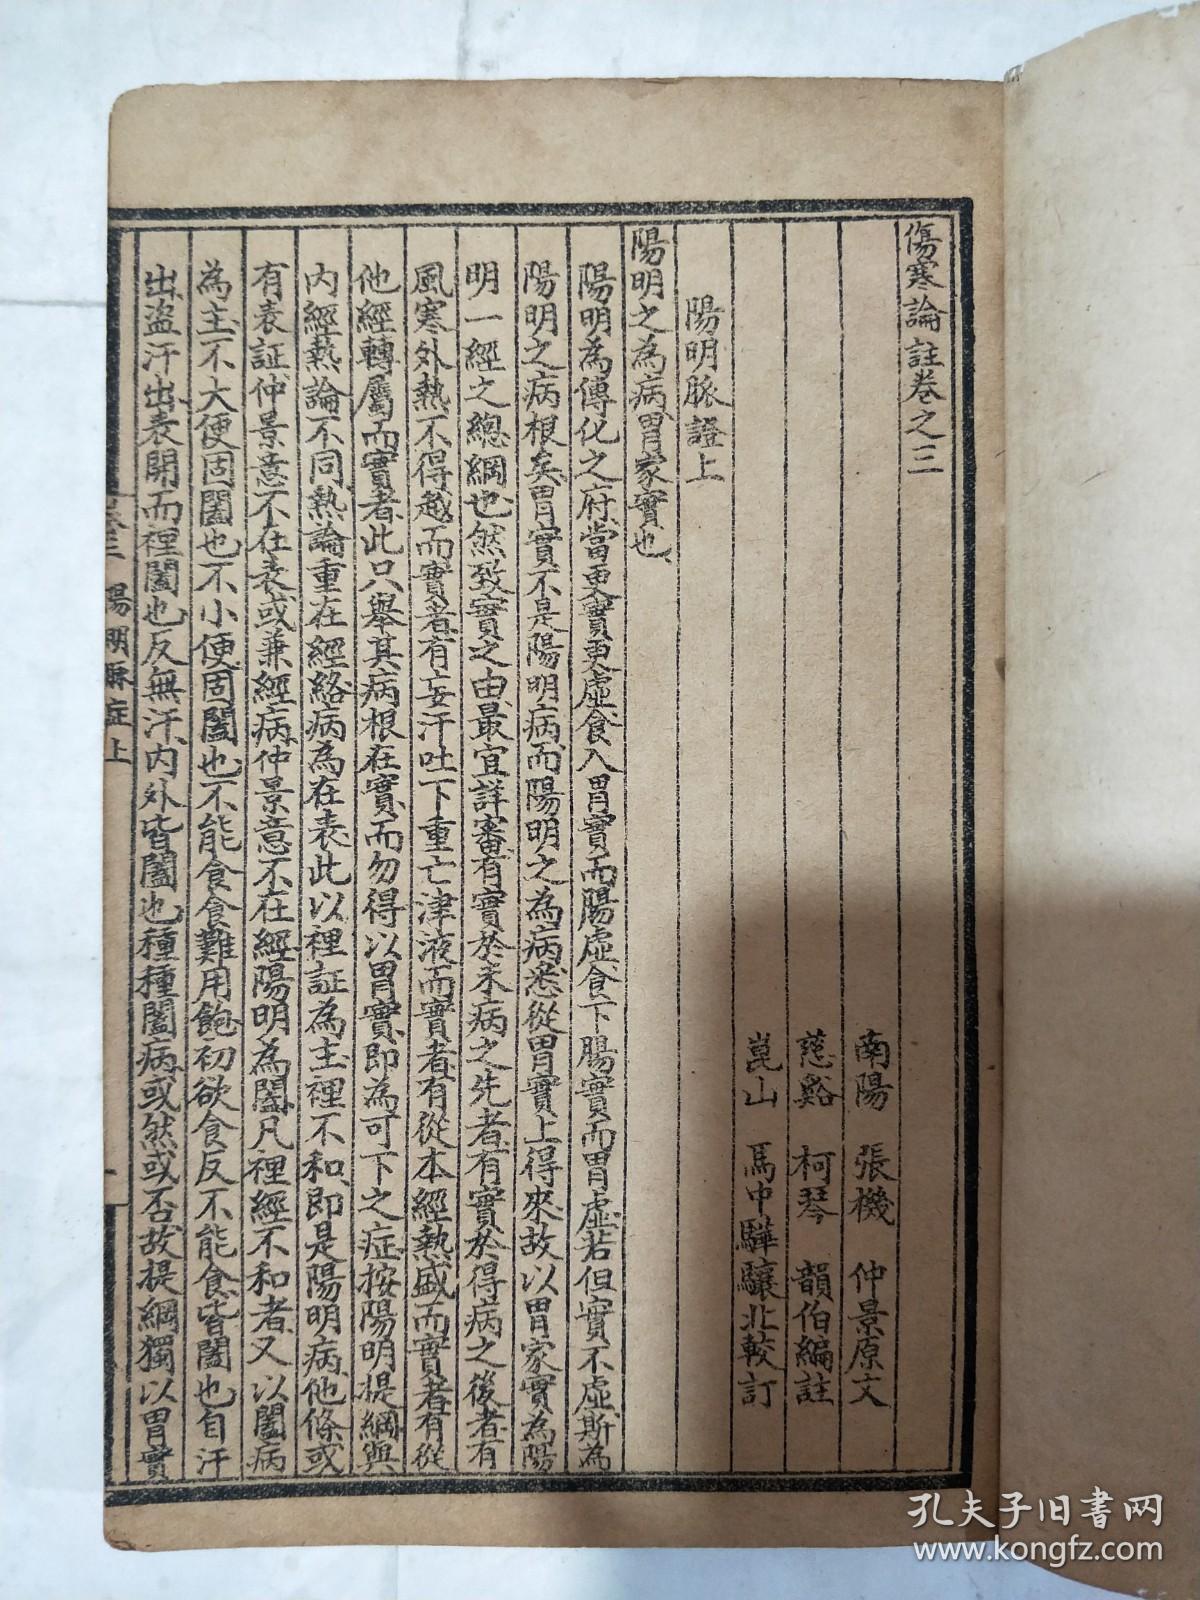 傷寒論註卷之三
南陽 張機 仲景原文
慈谿 柯琴 韻伯編註
崑山 馬中驊驤北較訂
陽明脈證上
陽明之為病胃家實也、
陽明為傳化之府當更實更虛食入胃實而腸虛食下腸實而胃虛若但實不虛斯為
陽明之病根矣胃實不是陽明病而陽明之為病悉從胃實上得來故以胃家實為陽
明一經之總綱也然致實之由最宜詳審有實於未病之先者有實於得病之後者有
風寒外熱不得越而實者有妄汗吐下重亡津液而實者有從本經熱盛而實者有從
他經轉屬而實者此只舉其病根在實而勿得以胃實即為可下之症按陽明提綱與
內經熱論不同熱論重在經絡病為在表此以裡証為主裡不和即是陽明病他條或
有表証仲景意不在表或兼經病仲景意不在經陽明為闔凡裡經不和者又以闔病
為主不大便固闔也不小便固闔也不能食食難用飽初欲食反不能食皆闔也自汗
出盜汗出表開而裡闔也反無汗內外皆闔也種種闔病或然或否故提綱獨以胃實
卷三 陽明脈症上 一
孔夫子旧书网
www.kongfz.com